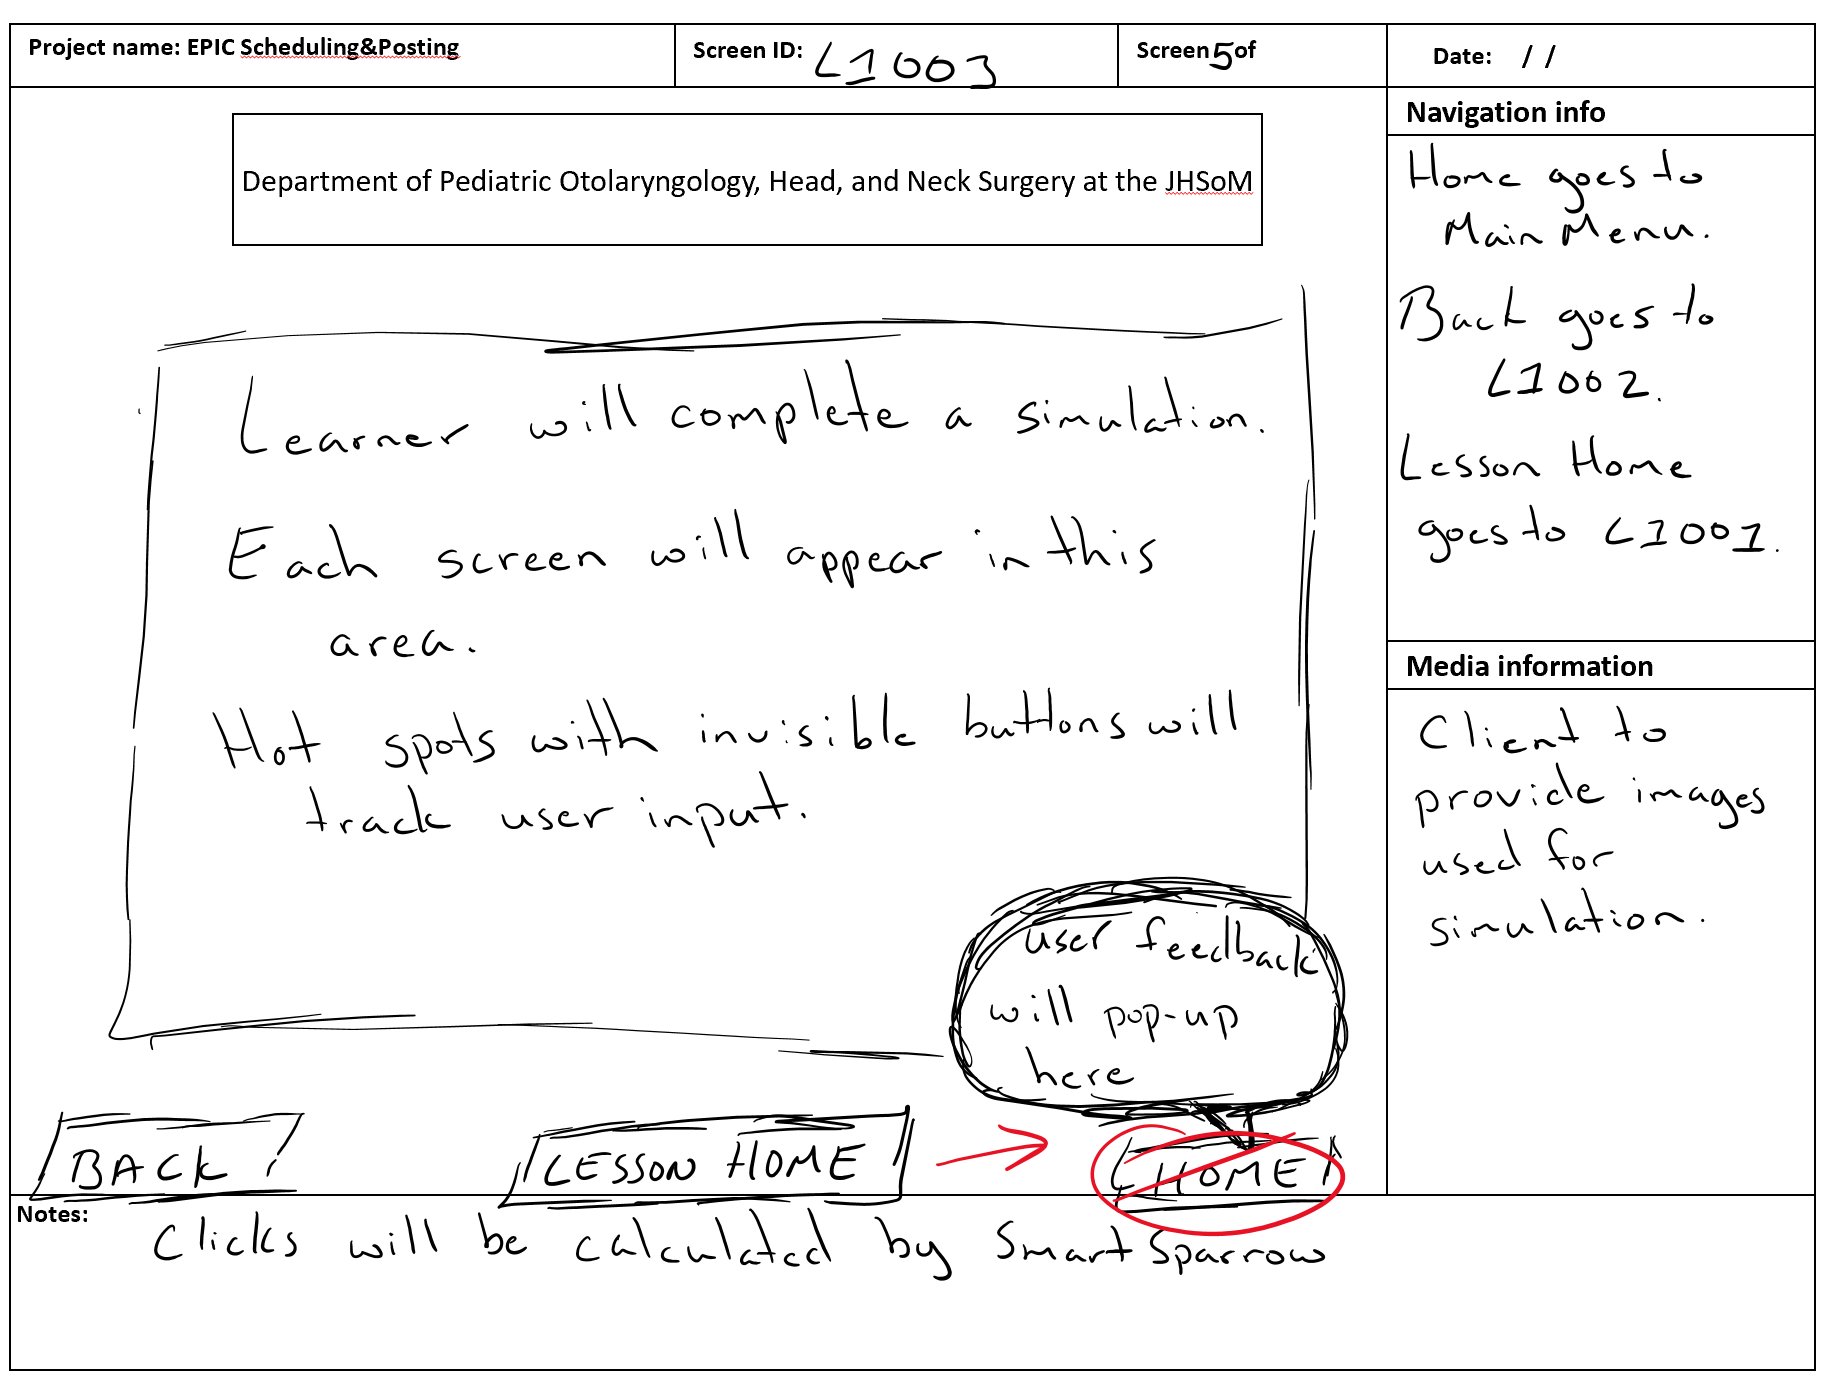 Project name: EPIC Scheduling&Posting
Screen ID: L1003
Screen 5 of
Date: / /
Department of Pediatric Otolaryngology, Head, and Neck Surgery at the JHSoM
Learner will complete a simulation.
Each screen will appear in this
area.
Hot spots with invisible buttons will
track user input.
user feedback
will pop-up
here
BACK
LESSON HOME
HOME
Navigation info
Home goes to
Main Menu.
Back goes to
L1002.
Lesson Home
goes to L1001.
Media information
Client to
provide images
used for
simulation.
Notes:
Clicks will be calculated by SmartSparrow